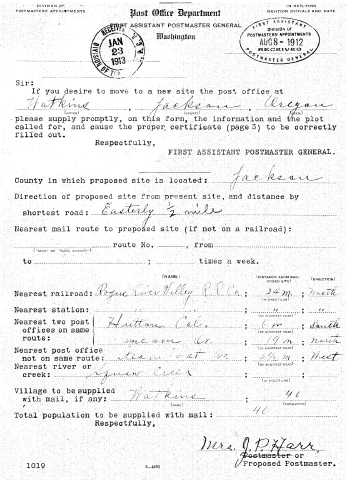 DIVISION OF
POSTMASTERS' APPOINTMENTS
Post Office Department
FIRST ASSISTANT POSTMASTER GENERAL
Washington
IN REPLYING
MENTION INITIALS AND DATE
RECEIVED
JAN
23
1913
FIRST ASSISTANT
DIVISION OF
POSTMASTERS APPOINTMENTS
AUG 8 - 1912
RECEIVED
POSTMASTER GENERAL
Sir:
If you desire to move to a new site the post office at
Watkins, Jackson, Oregon
please supply promptly, on this form, the information and the plot
called for, and cause the proper certificate (page 3) to be correctly
filled out.
Respectfully,
FIRST ASSISTANT POSTMASTER GENERAL.
County in which proposed site is located: Jackson
Direction of proposed site from present site, and distance by
shortest road: Easterly 1/2 mile
Nearest mail route to proposed site (if not on a railroad):
route No. , from
to ; times a week.
(NAME) (DIRECTION)
Nearest railroad: Rogue River Valley R.R. Co : 24 m. : North
Nearest station: " : " : "
Nearest two post Hutton Cal. : : South
offices on same
route: : 19 m : North
Nearest post office
not on same route: : : West
Nearest river or
creek: Squaw Creek
Village to be supplied
with mail, if any: Watkins : 46
Total population to be supplied with mail: 46
Respectfully,
Mrs. J. P. Harr,
Postmaster or
Proposed Postmaster.
1019